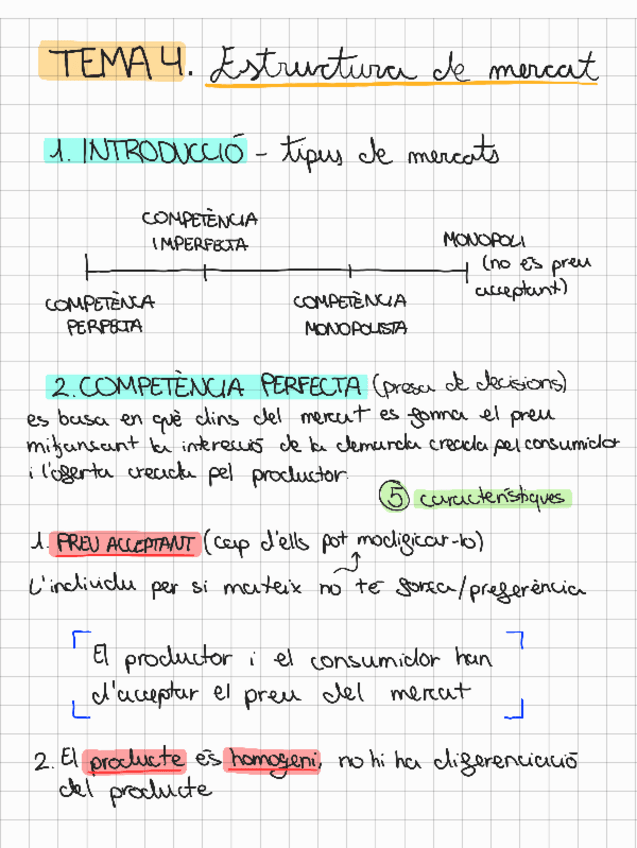 TEMA 4. Estructura de mercat
1. INTRODUCCIÓ - tipus de mercats
COMPETÈNCIA
IMPERFECTA
MONOPOLI
(no és preu
acceptant)
COMPETÈNCA
PERFECTA
COMPETÈNCIA
MONOPOLISTA
2. COMPETÈNCIA PERFECTA (presa de decisions)
es basa en què dins del mercat es forma el preu
mitjansant la interecció de la demanda creada pel consumidor
i l'oferta creada pel productor.
5 característiques
1. PREU ACCEPTANT (cap d'ells pot modificar-lo)
L'individu per si mateix no té força/preferència
El productor i el consumidor han
d'acceptar el preu del mercat
2. El producte és homogeni, no hi ha diferenciació
del producte